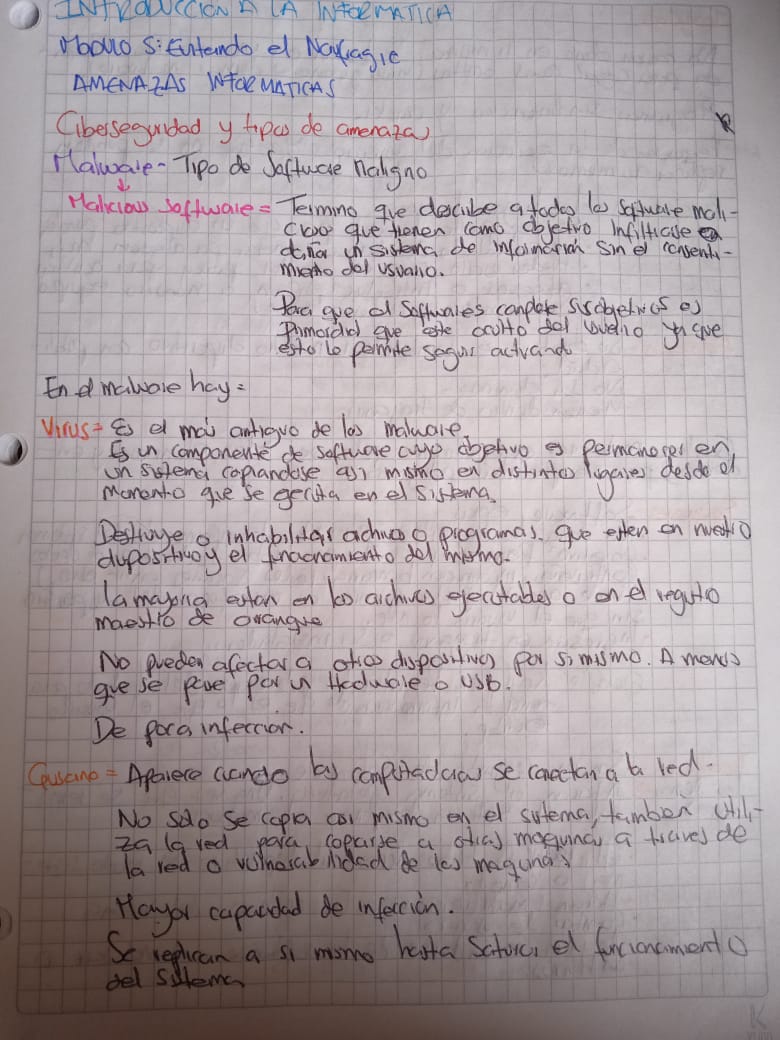 INTRODUCCION A LA INFORMATICA
Modulo 5: Evitando el Naufragio
AMENAZAS INFORMATICAS
Ciberseguridad y tipos de amenaza
Malware - Tipo de Software Maligno
Malicious software = Termino que describe a todos los software mali-
cioso que tienen como objetivo infiltrarse o
dañar un sistema de información sin el consenti-
miento del usuario.
Para que el Softwares complete sus objetivos es
Primordial que este oculto del usuario ya que
esto le permite seguir activando
En el malware hay =
Virus = Es el mas antiguo de los malware
Es un componente de software cuyo objetivo es permanecer en
un sistema copiandose asi mismo en distintos lugares desde el
momento que se ejecuta en el sistema
Destruye o inhabilitar archivos o programas. que esten en nuestro
dispositivo y el funcionamiento del mismo.
la mayoria estan en los archivos ejecutables o en el registro
maestro de arranque
No pueden afectar a otros dispositivos por si mismo. A menos
que se pase por un Hadware o USB.
De poca infeccion.
Gusano = Aparece cuando las computadoras se conectan a la red.
No solo se copia asi mismo en el sistema, tambien utili-
za la red para coparse a otras maquinas a traves de
la red o vulnerabilidad de las maquinas
Mayor capacidad de infección.
Se replican a si mismo hasta saturar el funcionamiento
del sistema